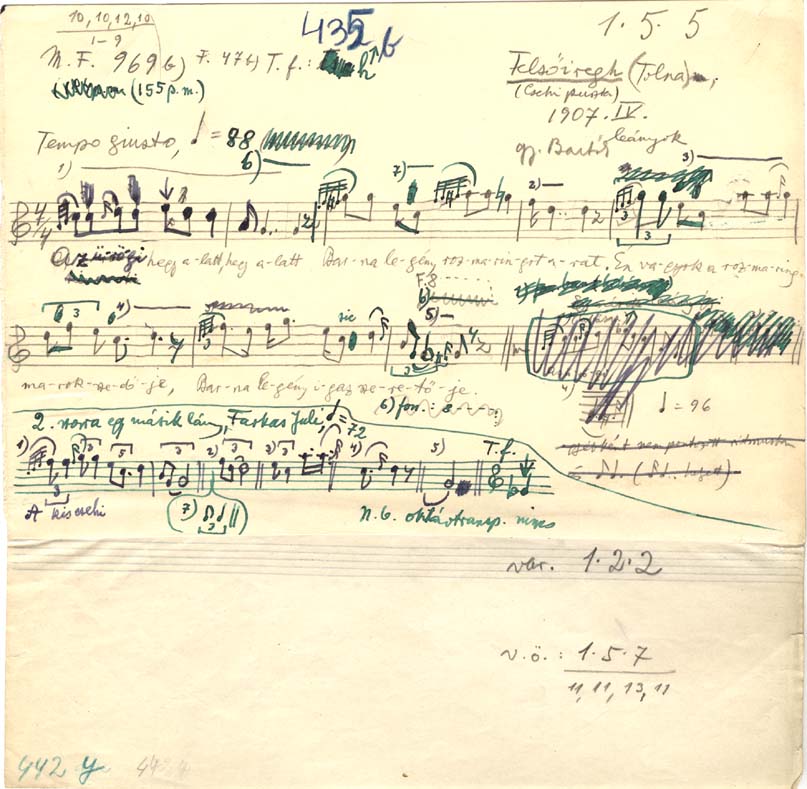 10, 10, 12, 10
1-9
435 b
1.5.5
M. F. 969 b) F. 47 b) T. f.: h
(155 p. m.)
Felsőiregh (Tolna)
(Csehi puszta)
1907. IV.
leányok
gy. Bartók
Tempo giusto, ♩ = 88
6)
1) 7) 2) 3)
4/4
3 3
Az ürögi hegy a-latt, hegy a-latt Bar-na le-gény roz-ma-rin-got a-rat. Én va-gyok a roz-ma-ring-
F. 8
6)
3 4) sic 5)
3 3
ma-rok-sze-di-je, Bar-na le-gény i-gaz sze-re-tő-je.
4)
6) fon.: 8
♩ = 96
2. vorra egy másik lány, Farkas Juli ♩ = 72
1) 3 5 3 2) 3 3) 3 4) 5) T. f.
3
7) 3
A kiscsehi
N. b. oktávtransp. nincs
var. 1.2.2
v. ö.: 1.5.7
11, 11, 13, 11
442 y